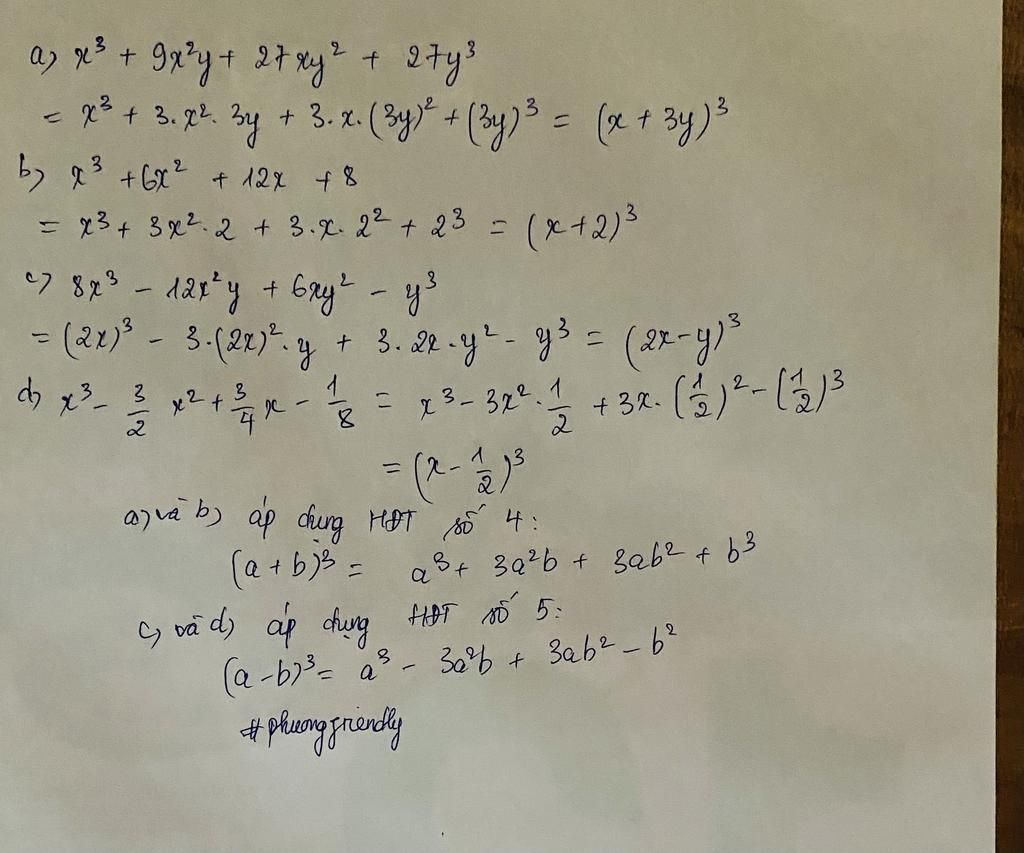 a) x³ + 9x²y + 27xy² + 27y³
= x³ + 3.x². 3y + 3.x.(3y)² + (3y)³ = (x + 3y)³
b) x³ + 6x² + 12x + 8
= x³ + 3x².2 + 3.x.2² + 2³ = (x+2)³
c) 8x³ - 12x²y + 6xy² - y³
= (2x)³ - 3.(2x)².y + 3.2x.y² - y³ = (2x-y)³
d) x³ - 3/2 x² + 3/4 x - 1/8 = x³ - 3x². 1/2 + 3x.(1/2)² - (1/2)³
= (x - 1/2)³
a) và b) áp dụng HĐT số 4:
(a + b)³ = a³ + 3a²b + 3ab² + b³
c) và d) áp dụng HĐT số 5:
(a - b)³ = a³ - 3a²b + 3ab² - b²
#phuongfriendly